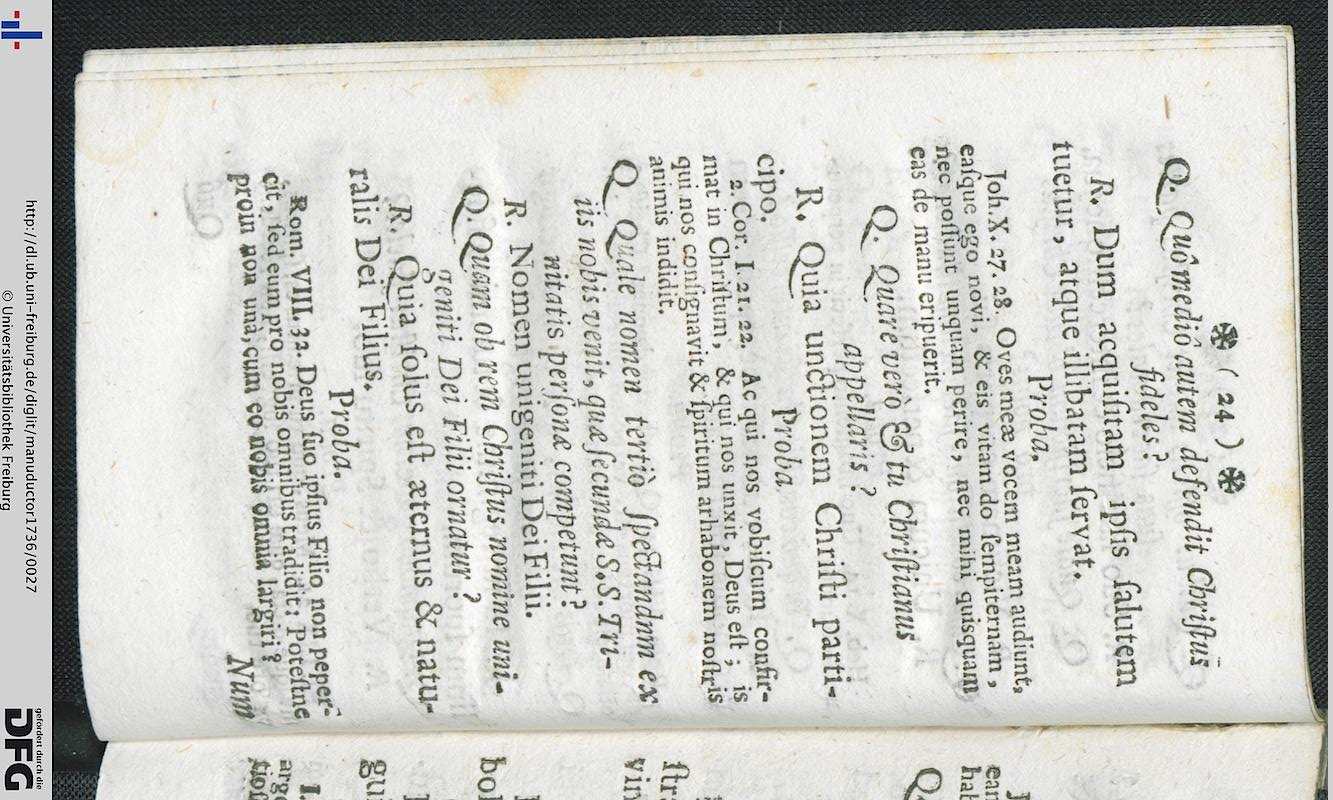 ❇ ( 24 ) ❇
Q. Quô mediô autem defendit Chriſtus
fideles?
R. Dum acquiſitam ipſis ſalutem
tuetur, atque illibatam ſervat.
Proba.
Joh. X. 27. 28. Oves meæ vocem meam audiunt,
eaſque ego novi, & eis vitam do ſempiternam,
nec poſſunt unquam perire, nec mihi quisquam
eas de manu eripuerit.
Q. Quare verò & tu Chriſtianus
appellaris?
R. Quia unctionem Chriſti parti-
cipo.
Proba
2. Cor. I. 21. 22. Ac qui nos vobiſcum confir-
mat in Chriſtum, & qui nos unxit, Deus eſt; is
qui nos conſignavit & ſpiritum arhabonem noſtris
animis indidit.
Q Quale nomen tertiò ſpectandnm ex
iis nobis venit, quæ ſecundæ S. S. Tri-
nitatis perſonæ competunt?
R. Nomen unigeniti Dei Filii.
Q. Quam ob rem Chriſtus nomine uni-
geniti Dei Filii ornatur?
R. Quia ſolus eſt æternus & natu-
ralis Dei Filius.
Proba.
Rom. VIII. 32. Deus ſuo ipſius Filio non peper-
cit, ſed eum pro nobis omnibus tradidit: Poteſtne
proin non unà, cum eo nobis omnia largiri?
Num
http://dl.ub.uni-freiburg.de/diglit/manuductor1736/0027
© Universitätsbibliothek Freiburg
gefördert durch die
DFG